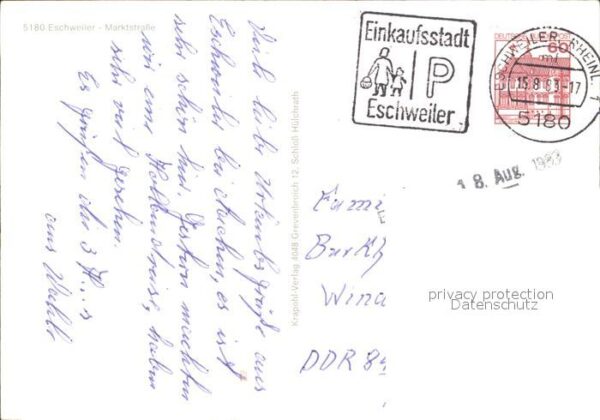 5180 Eschweiler - Marktstraße
Viele liebe Urlaubsgrüße aus
Eschweiler bei Aachen, es ist
sehr schön hier. Gestern machten
wir eine Hollandreise, haben
sehr viel gesehen.
Es grüßen die 3 H...s
aus
Krapohl-Verlag 4048 Grevenbroich 12, Schloß Hülchrath
Einkaufsstadt
P
Eschweiler
DEUTSCHE BUNDESPOST
60
ESCHWEILER, RHEINL 1
15.8.83-17
5180
18. Aug. 1983
Fami
Burkh
Wina
DDR 84
privacy protection
Datenschutz